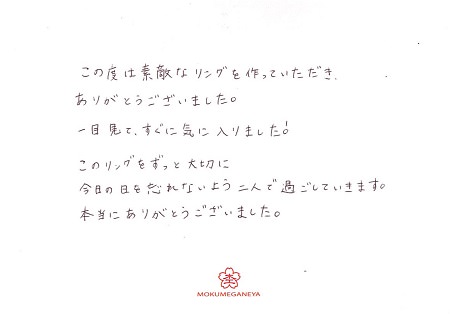 この度は素敵なリングを作っていただき、
ありがとうございました。
一目見て、すぐに気に入りました!
このリングをずっと大切に
今日の日を忘れないよう二人で過ごしていきます。
本当にありがとうございました。
MOKUMEGANEYA